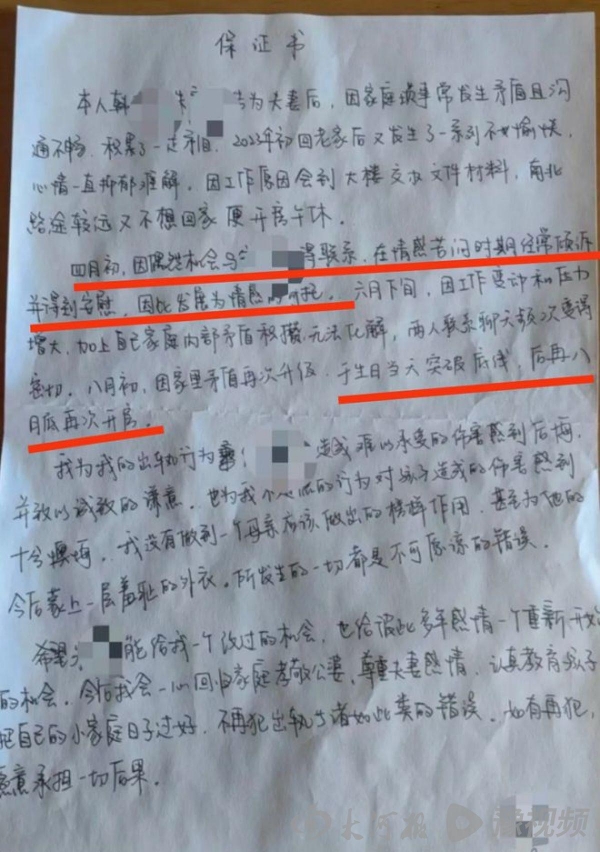 保证书
本人韩 朱 为夫妻后，因家庭琐事常发生矛盾且沟
通不畅，积累了一定矛盾。2023年初回老家后又发生了一系列不愉快，
心情一直抑郁难解。因工作原因会到大楼交接文件材料，南北
路途较远又不想回家便开房午休。
四月初，因偶然机会与 得联系，在情感苦闷时期经常倾诉
并得到安慰，因此发展为情感 。六月下旬，因工作变动和压力
增大，加上自己家庭内部矛盾积攒无法化解，两人联系聊天频次变得
密切。八月初，因家里矛盾再次升级，于生日当天突破底线，后再八
月底再次开房。
我为我的出轨行为 造成难以承受的伤害感到后悔，
并致以诚致的谦意。也为我 的行为对孩子造成的伤害感到
十分懊悔，我没有做到一个母亲应该做出的榜样作用，甚至为他的
今后蒙上一层羞耻的外衣。所发生的一切都是不可原谅的错误。
希望 能给我一个改过的机会，也给彼此多年感情一个重新开始
的机会。今后我会一心回归家庭孝敬公婆，尊重夫妻感情，认真教育孩子
把自己的小家庭日子过好，不再犯出轨 诸如此类的错误。如有再犯，
愿意承担一切后果。
大河报 视频